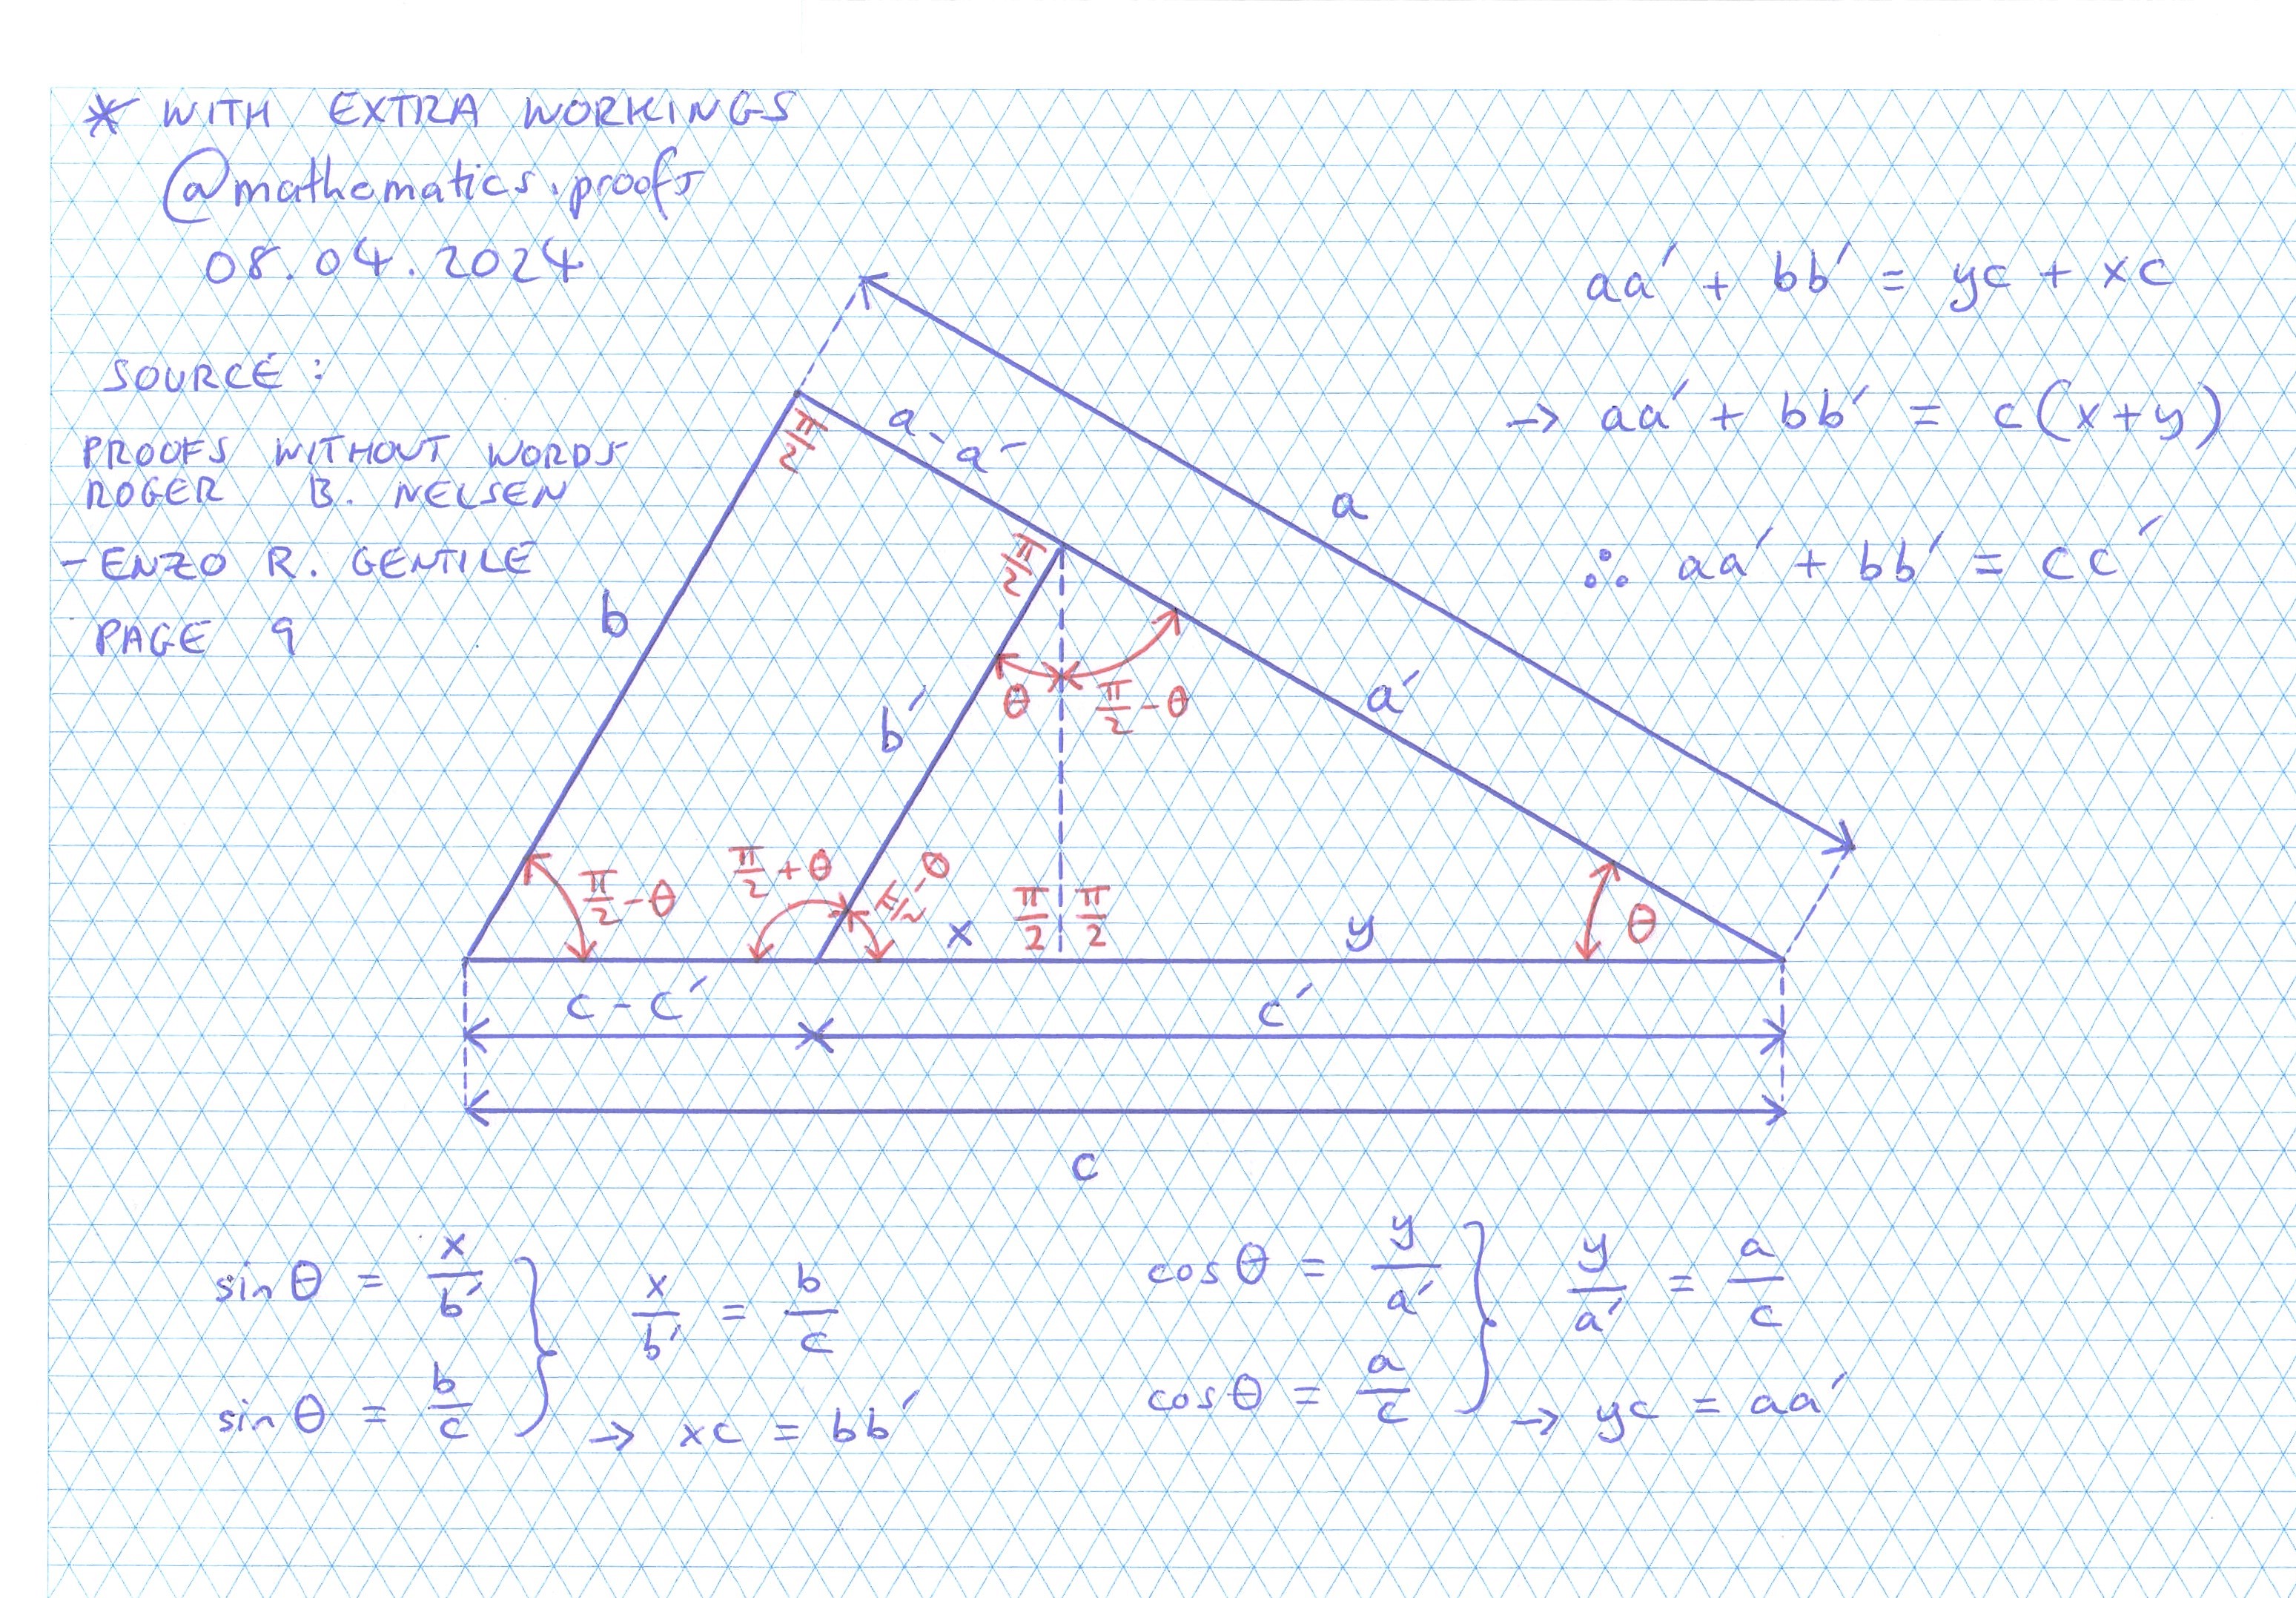 * WITH EXTRA WORKINGS
@mathematics.proofs
08.04.2024
SOURCE:
PROOFS WITHOUT WORDS
ROGER B. NELSEN
- ENZO R. GENTILE
PAGE 9
aa′ + bb′ = yc + xc
→ aa′ + bb′ = c(x+y)
∴ aa′ + bb′ = cc′
π/2
a - a′
a
b
π/2
θ
π/2 - θ
b′
a′
π/2 - θ
π/2 + θ
π/2 - θ
x
π/2
π/2
y
θ
c - c′
c′
c
sin θ = x/b′
sin θ = b/c
x/b′ = b/c
→ xc = bb′
cos θ = y/a′
cos θ = a/c
y/a′ = a/c
→ yc = aa′